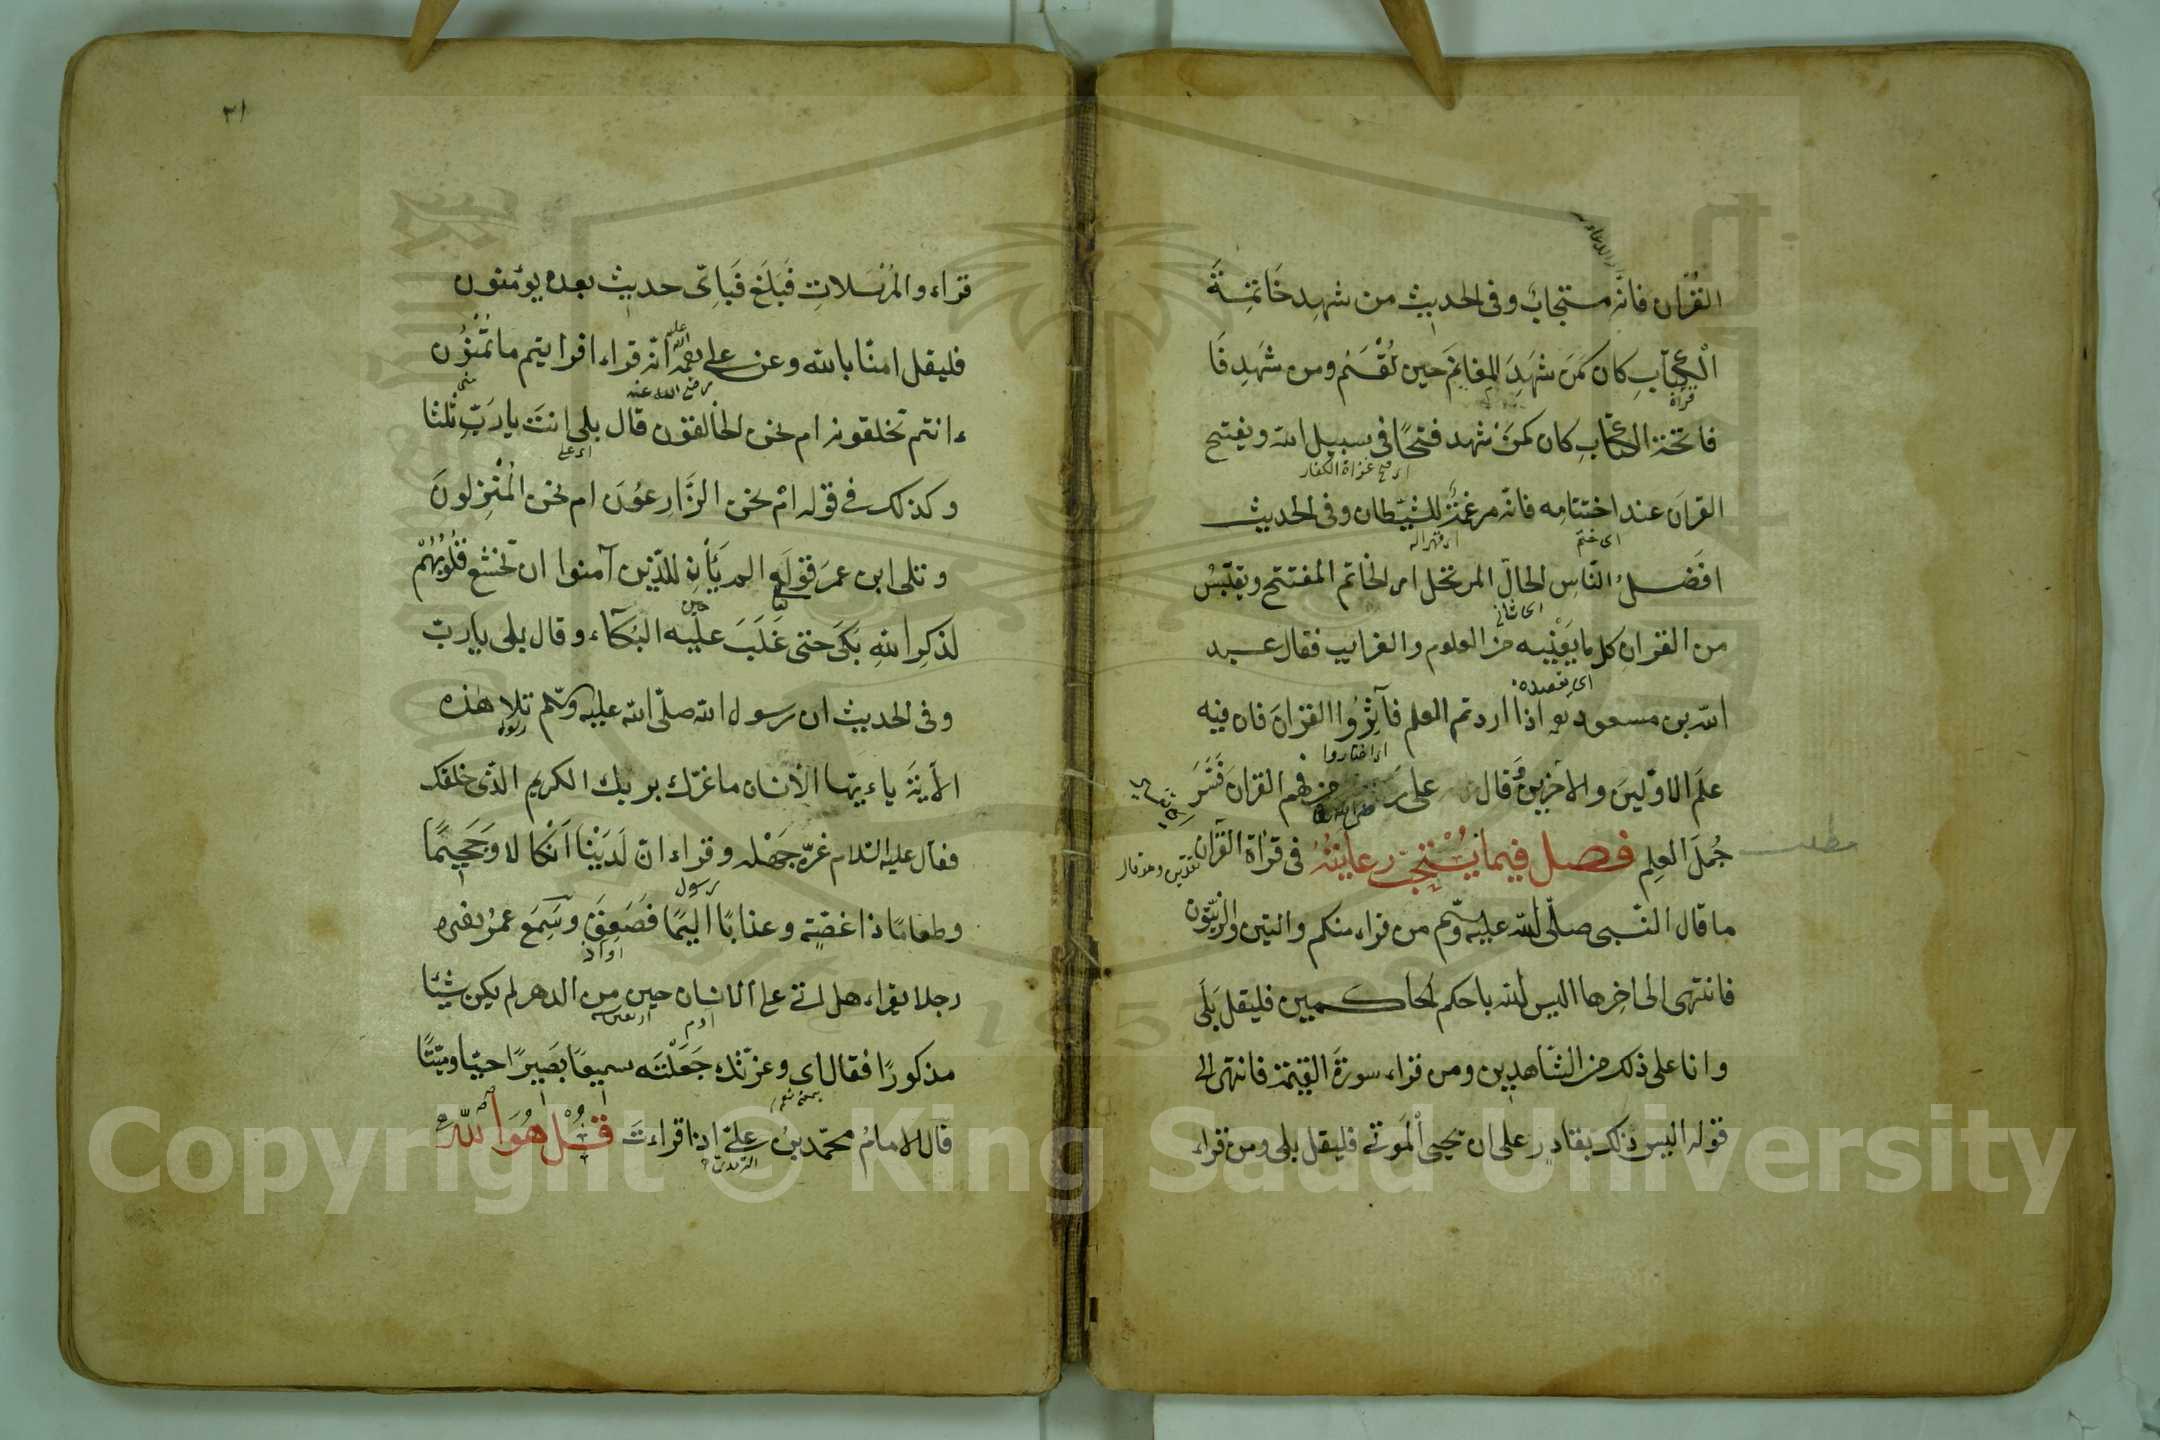 القرآن فانه مستجاب وفي الحديث من شهد خاتمة
الكتاب كان كمن شهد المغانم حين تقسم ومن شهد فا
فاتحة الكتاب كان كمن شهد فتحا في سبيل الله ويفتتح
اى فتح غزاة الكفار
القرآن عند اختتامه فانه مرغمة للشيطان وفي الحديث
اى ختم
افضل الناس الحال المرتحل اى الخاتم المفتتح ويقتبس
من القرآن كل ما يعنيه من العلوم والغرايب فقال عبد
اى يقصده
الله بن مسعود اذا اردتم العلم فآثروا القرآن فان فيه
اى اختاروا
علم الاولين والآخرين وقال على من فهم القرآن فسر
مطلب
جمل العلم فصل فيما يستحب رعايته في قراة القرآن
ما قال النبي صلى الله عليه وسلم من قراء منكم والتين والزيتون
فانتهى الى اخرها اليس الله باحكم الحاكمين فليقل بلى
وانا على ذلك من الشاهدين ومن قراء سورة القيمة فانتهى الى
قوله اليس ذلك بقادر على ان يحيى الموتى فليقل بلى ومن قراء
٢١
قراء والمرسلات فبلغ فباى حديث بعده يؤمنون
فليقل امنا بالله وعن على انه قراء افرايتم ما تمنون
رضى الله عنه
ءانتم تخلقونه ام نحن الخالقون قال بلى انت يا رب ثلثا
وكذلك في قوله ام نحن الزارعون ام نحن المنزلون
وتلى ابن عمر قوله الم يأن للذين آمنوا ان تخشع قلوبهم
لذكر الله بكى حتى غلب عليه البكاء وقال بلى يا رب
وفي الحديث ان رسول الله صلى الله عليه وسلم تلا هذه
الآية ياءيها الانسان ما غرك بربك الكريم الذى خلقك
فقال عليه السلام غره جهله وقراء ان لدينا انكالا وجحيما
رسول
وطعاما ذا غصة وعذابا اليما فصعق وسمع عمر
رجلا يقراء هل اتى على الانسان حين من الدهر لم يكن شيئا
آدم
مذكورا فقال اى وعزتك جعلته سميعا بصيرا احيا وميتا
بمعنى نعم
قال الامام محمد بن على اذا قراءت قل هو الله
الترمذى
Copyright © King Saud University
1957